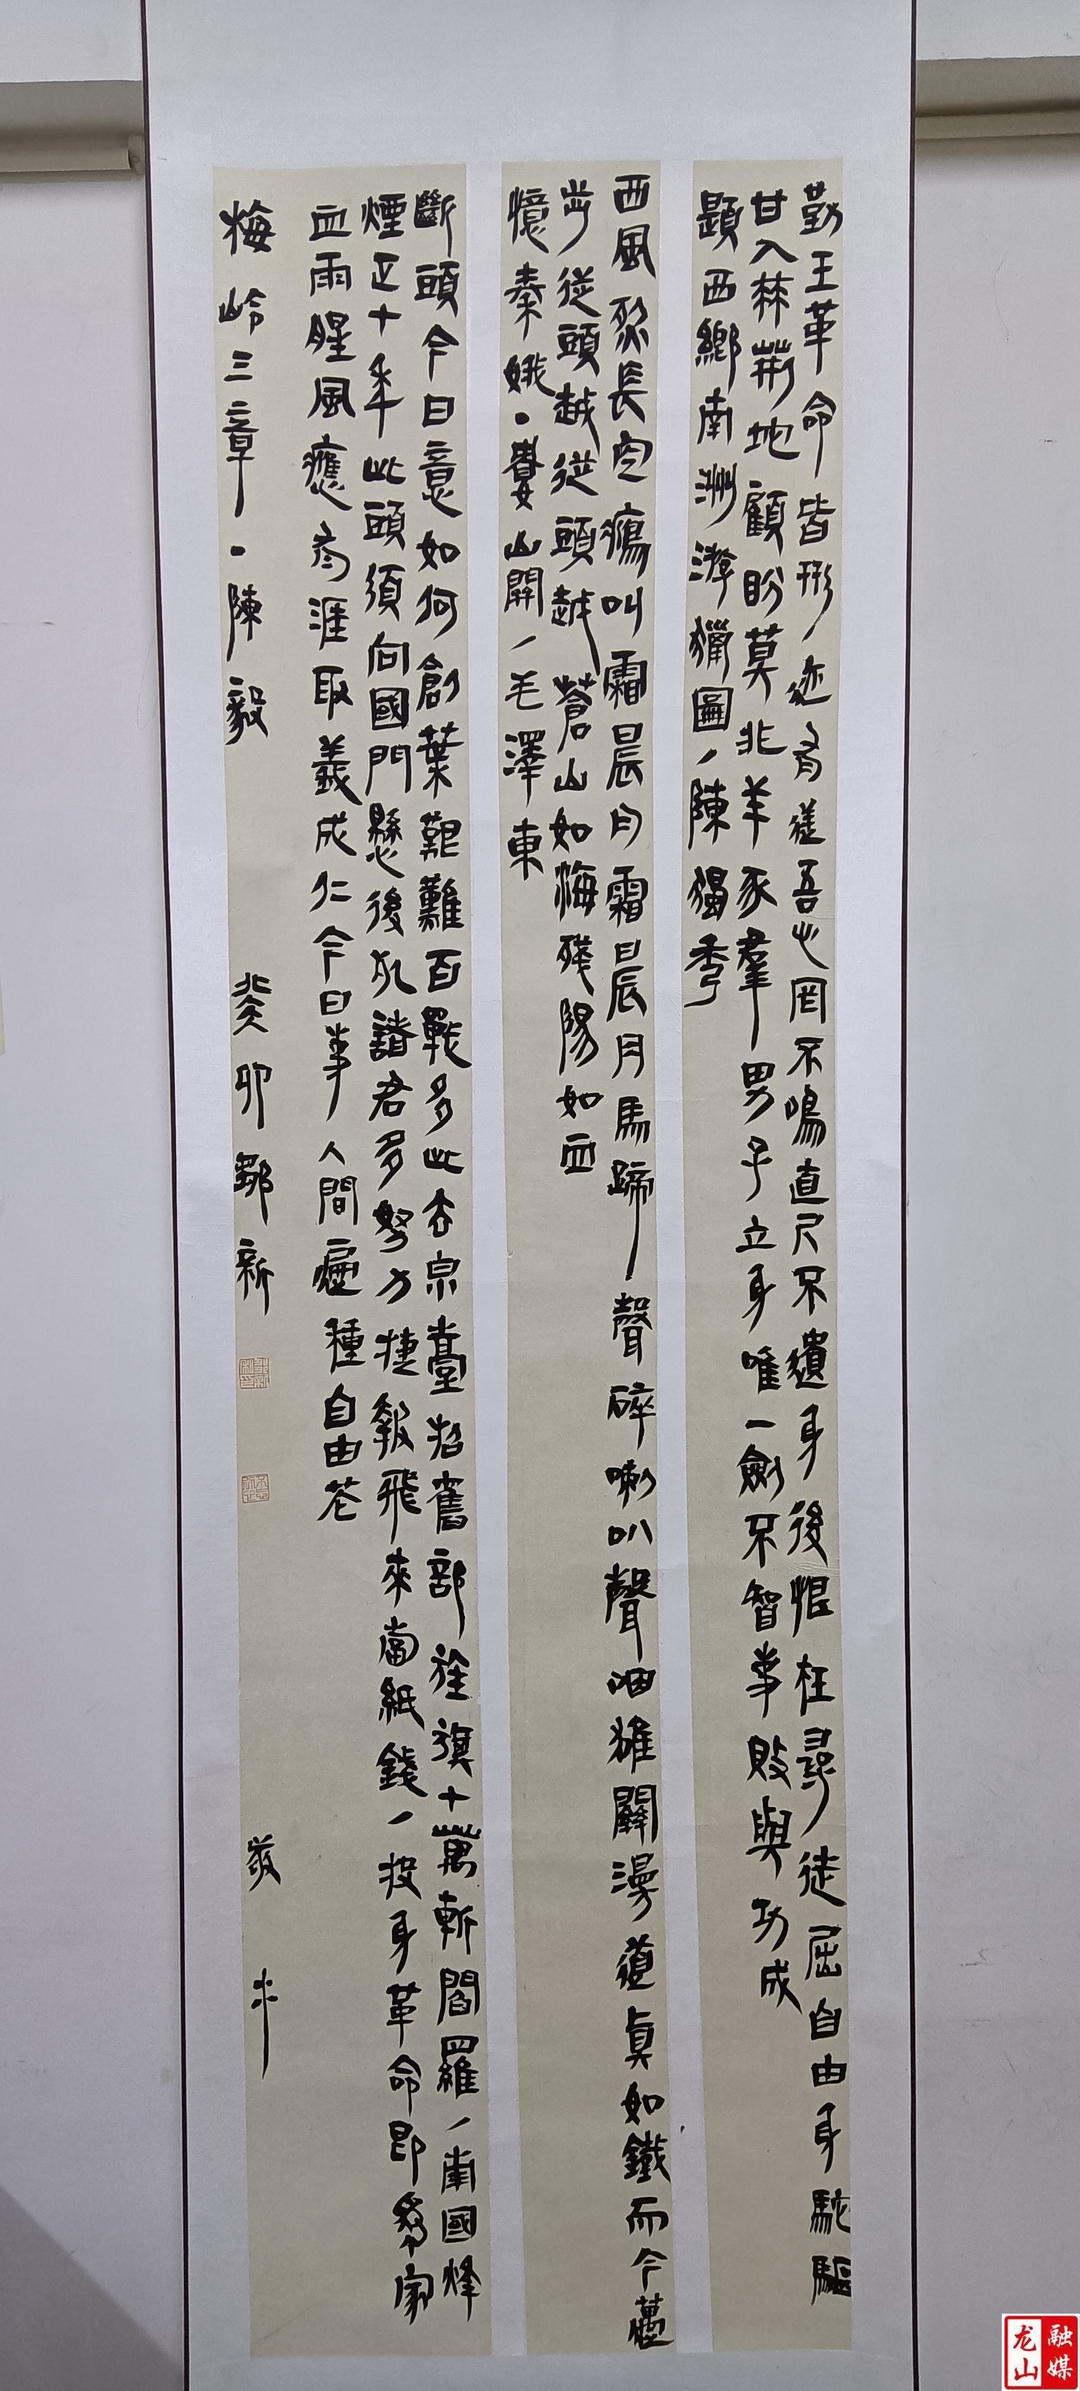 勤王革命皆形迹有逆吾心罔不鳴直尺不遺身後恨枉尋徒屈自由身馳驅
甘入棘荆地顧盼莫非羊豕羣男子立身唯一劍不智事敗與功成
題西鄉南洲游獵圖、陳獨秀
西風烈長空鴈叫霜晨月霜晨月馬蹄聲碎喇叭聲咽雄關漫道真如鐵而今邁
步從頭越從頭越蒼山如海殘陽如血
憶秦娥·婁山關、毛澤東
斷頭今日意如何創業艱難百戰多此去泉臺招舊部旌旗十萬斬閻羅、南國烽
煙正十年此頭須向國門懸後死諸君多努力捷報飛來當紙錢、投身革命即為家
血雨腥風應有涯取義成仁今日事人間遍種自由花
梅岭三章·陳毅
癸卯鄒新
敬书
龙山
融媒